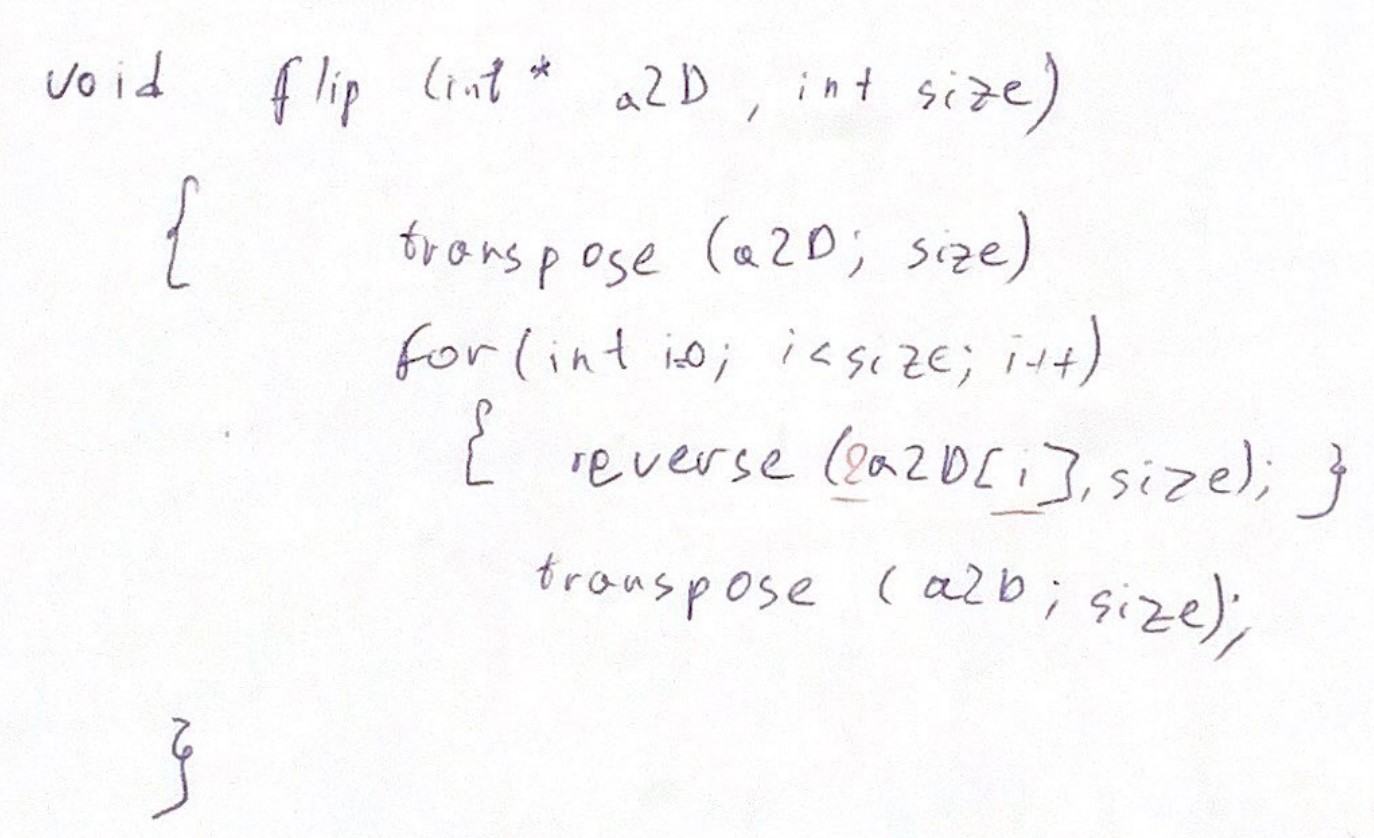 void flip (int * a2D , int size)
{ transpose (a2D; size)
for (int i=0; i<size; i++)
{ reverse (&a2D[i], size); }
transpose (a2D; size);
}